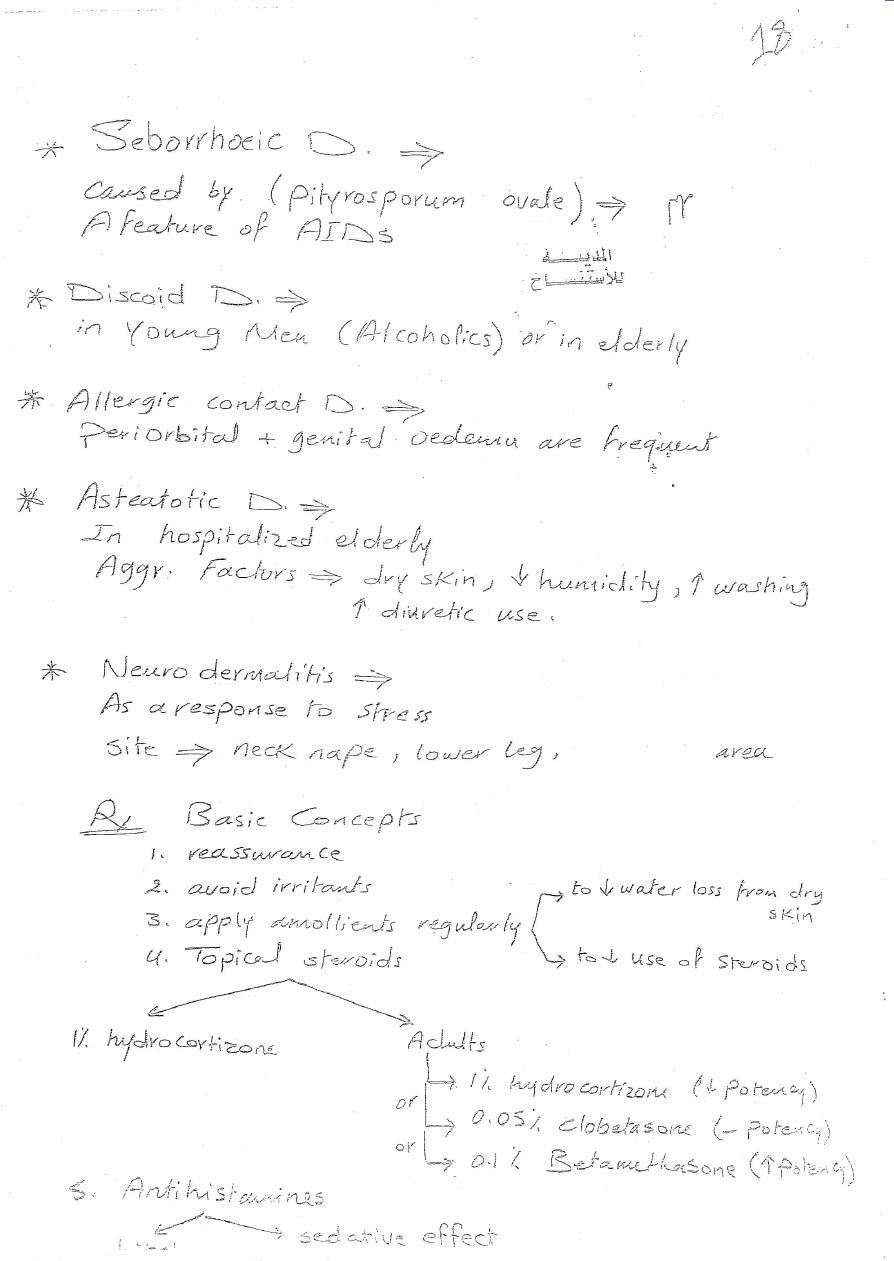 18
* Seborrhoeic D. ⇒
Caused by (Pityrosporum ovale) ⇒
A feature of AIDs
المدينة
للأستنساخ
* Discoid D. ⇒
in Young Men (Alcoholics) or in elderly
* Allergic contact D. ⇒
Periorbital + genital oedema are frequent
* Asteatotic D. ⇒
In hospitalized elderly
Aggr. Factors ⇒ dry skin, ↓ humidity, ↑ washing
↑ diuretic use.
* Neurodermatitis ⇒
As a response to stress
Site ⇒ neck nape, lower leg, area
R, Basic Concepts
1. reassurance
2. avoid irritants
3. apply amollients regularly
→ to ↓ water loss from dry
skin
→ to ↓ use of steroids
4. Topical steroids
1% hydrocortizone
Adults
→ 1% hydrocortizone (↓ potency)
or → 0.05% Clobetasone (– potency)
or → 0.1% Betamethasone (↑ potency)
5. Antihistamines
→ sedative effect